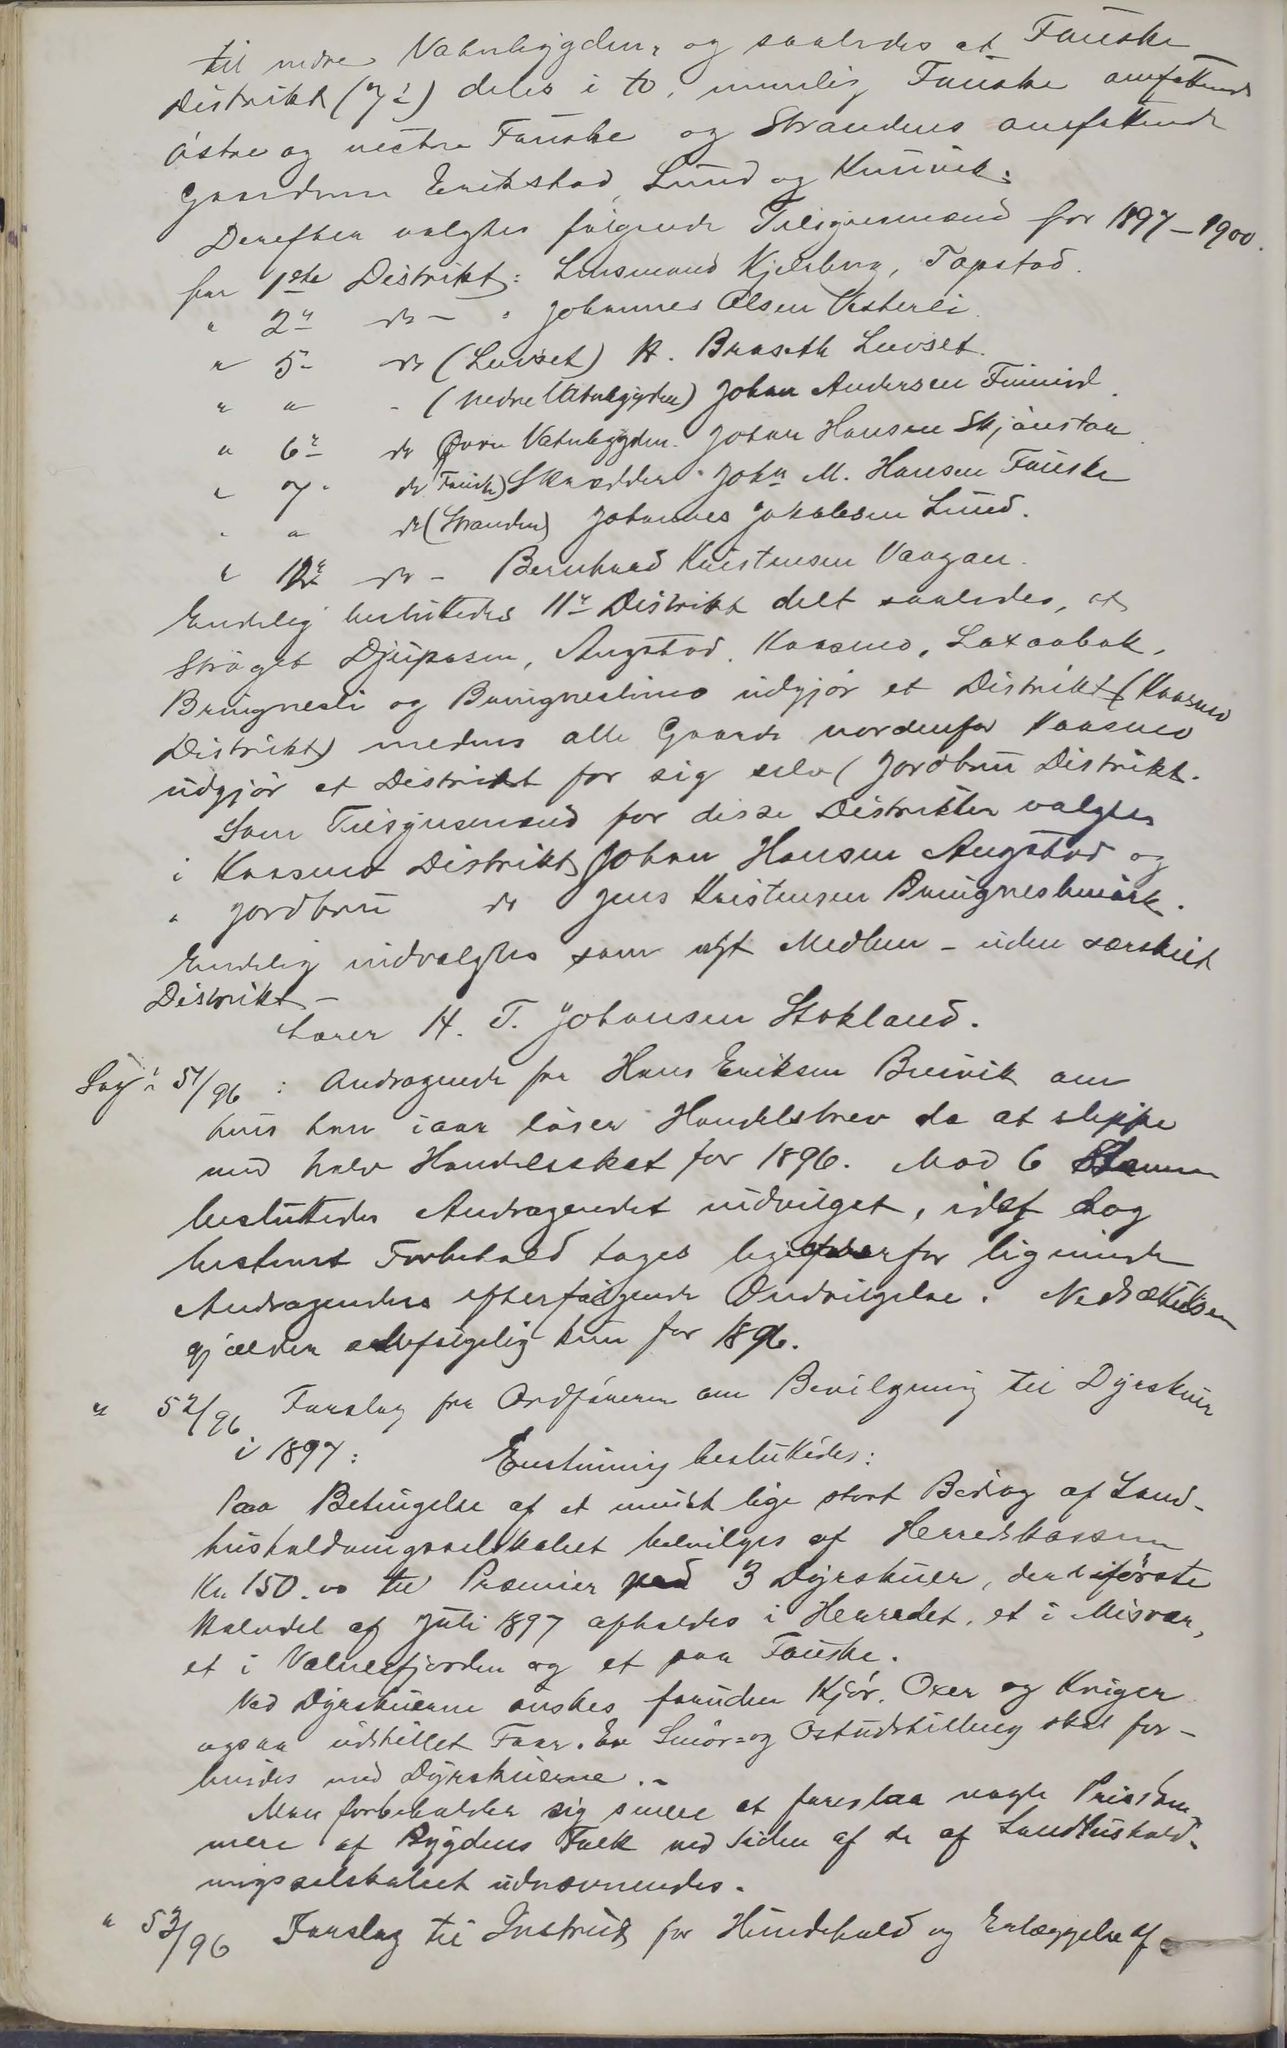 til nedre Vatnbygden, og saaledes at Fauske
Distrikt (7de) deles i to, nemlig Fauske omfattende
østre og vestre Fauske og Strandens omfattende
Gaardene Erikstad, Lund og Kvitvik.
Derefter valgtes følgende Tilsynsmænd for 1897–1900.
for 1ste Distrikt: Lensmand Kjelsberg, Tapstad.
" 2" do – " Johannes Olsen Vesterli.
" 5– do (Løvset) A. Braseth Løvset.
" " – (nedre Vatnbygden) Johan Andersen Finneid.
" 6" do Øvre Vatnbygden. Johan Hansen Skjønstaa
" 7" do (Fauske) Skrædder John M. Hansen Fauske
" " do (Stranden) Johannes Jakobsen Lund.
" 12te do – Bernhard Kristensen Vaagan.
Endelig besluttedes 11te Distrikt delt saaledes, at
Strøget Djupaasen, Augstad, Kaasmo, Laxaabak,
Bringnesli og Bringneslimo udgjør et Distrikt (Kaasmo
Distrikt) medens alle Gaarde nordenfor Kaasmo
udgjør et Distrikt for sig selv (Jordbru Distrikt.
Som Tilsynsmænd for disse Distrikter valgtes
i Kaasmo Distrikt Johan Hansen Augstad og
" Jordbru do Jens Kristensen Bringneslimark.
Endelig indvalgtes som nyt Medlem – uden særskilt
Distrikt –
Lærer H. T. Johansen Stokland.
Sag 51/96 : Andragende fra Hans Eriksen Breivik om
hvis han iaar løser Handelsbrev da at slippe
med halv Handelsskat for 1896. Mod 6 Stemmer
besluttedes Andragendet indvilget, idet dog
bestemt Forbehold tages ligeoverfor lignende
Andragenders efterfølgende Indvilgelse. Nedsættelsen
gjælder selvfølgelig kun for 1896.
" 52/96 Forslag fra Ordføreren om Bevilgning til Dyrskuer
i 1897: Enstemmig besluttedes:
Paa Betingelse af et mindst lige stort Bidrag af Land-
husholdningsselskabet bevilges af Herredskassen
Kr. 150.00 til Præmier ved 3 Dyrskuer, der i første
Halvdel af Juli 1897 afholdes i Herredet, et i Misvær,
et i Valnesfjorden og et paa Fauske.
Ved Dyrskuerne ønskes foruden Kjør, Oxer og Kviger
ogsaa udstillet Faar. En Smør- og Ostudstilling skal for-
bindes med Dyrskuerne. –
Man forbeholder sig senere at foreslaa nogle Prisdom-
mere af Bygdens Folk ved Siden af de af Landhushold-
ningsselskabet udnævnendes.
" 53/96 Forslag til Instrux for Hundehold og Erlæggelse af